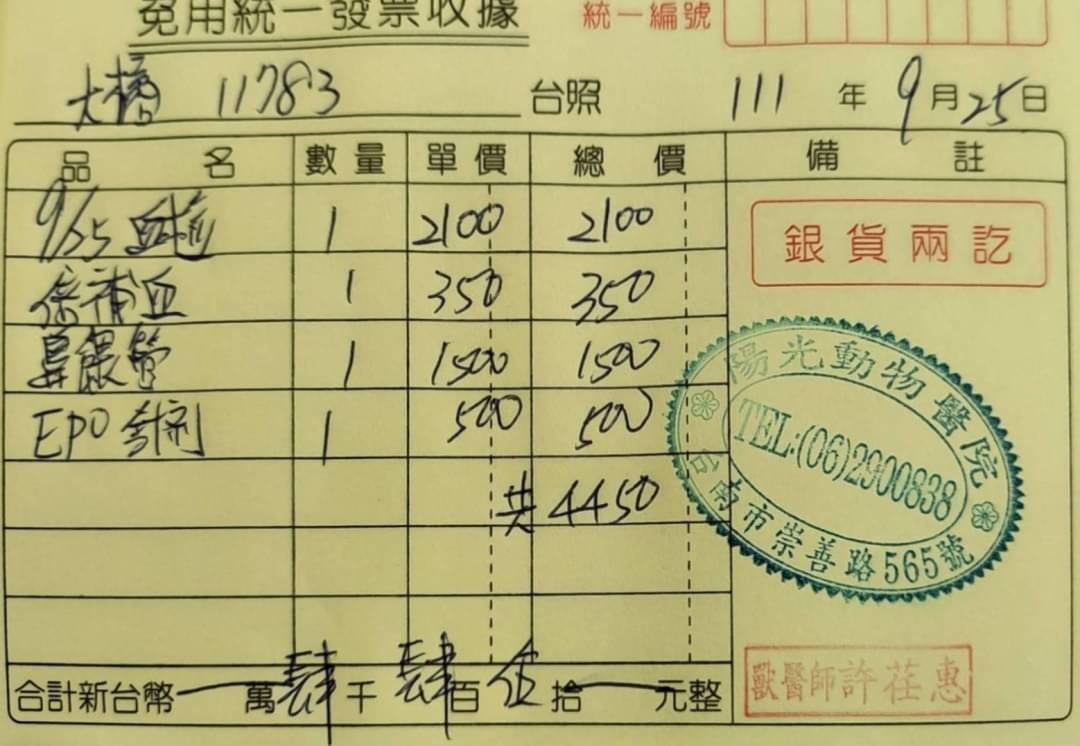 免用統一發票收據 統一編號
大橋 11783 台照 111 年 9 月 25 日
品名 數量 單價 總價 備註
9/25 血檢 1 2100 2100
銀貨兩訖
保補血 1 350 350
鼻餵管 1 1500 1500
EPO 針劑 1 500 500
共 4450
陽光動物醫院
TEL:(06)2900838
台南市崇善路565號
合計新台幣 萬肆千肆百伍拾 元整
獸醫師許荏惠